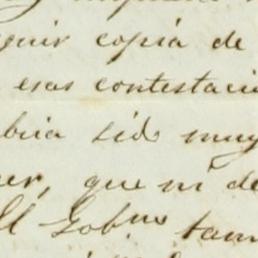 guir copia de
esas contestaci
bria sido muy
cer, que ni de
El Gobno tam